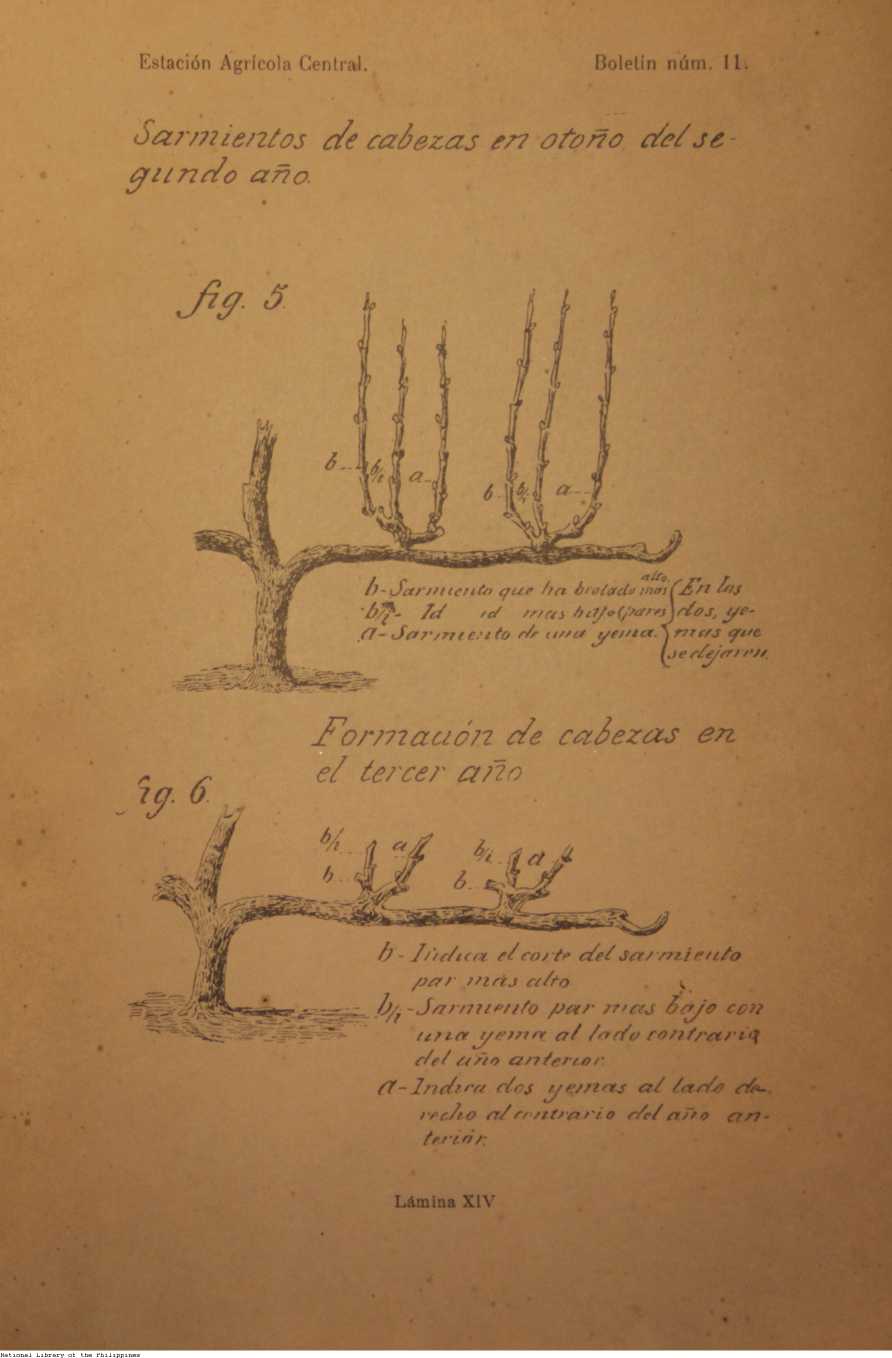 Estación Agrícola Central. Boletín núm. 11.
Sarmientos de cabezas en otoño del se-
gundo año.
fig. 5.
b b/1 a b b/1 a
b-Sarmiento que ha brotado mas alto. En los
b/1- Id id mas bajo (pares dos, ye-
a-Sarmiento de una yema. mas que
se dejaron.
Formación de cabezas en
el tercer año
fig. 6.
b/1 a b/1 a
b b
b-Indica el corte del sarmiento
par más alto
b/1-Sarmiento par mas bajo con
una yema al lado contrario
del año anterior.
a-Indica dos yemas al lado de-
recho al contrario del año an-
teriór.
Lámina XIV
National Library of the Philippines